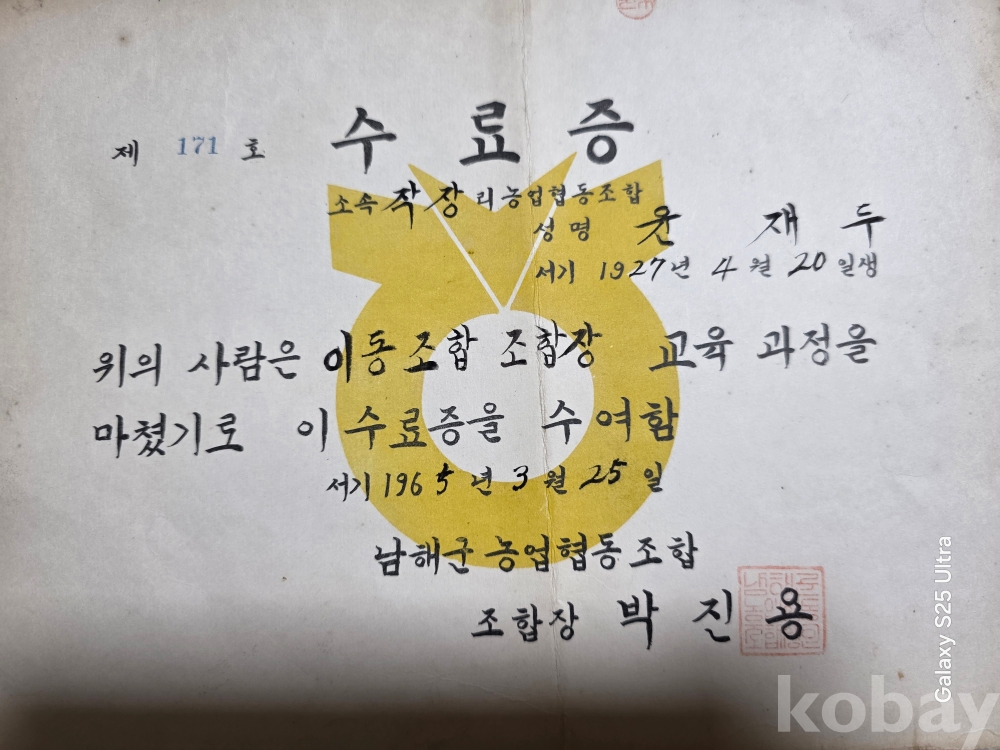 수료증
제 171 호
소속 작장리농업협동조합
성명 윤재두
서기 1927년 4월 20일생
위의 사람은 이동조합 조합장 교육 과정을
마쳤기로 이 수료증을 수여함
서기 1965년 3월 25일
남해군농업협동조합
조합장 박진용
Galaxy S25 Ultra
kobay